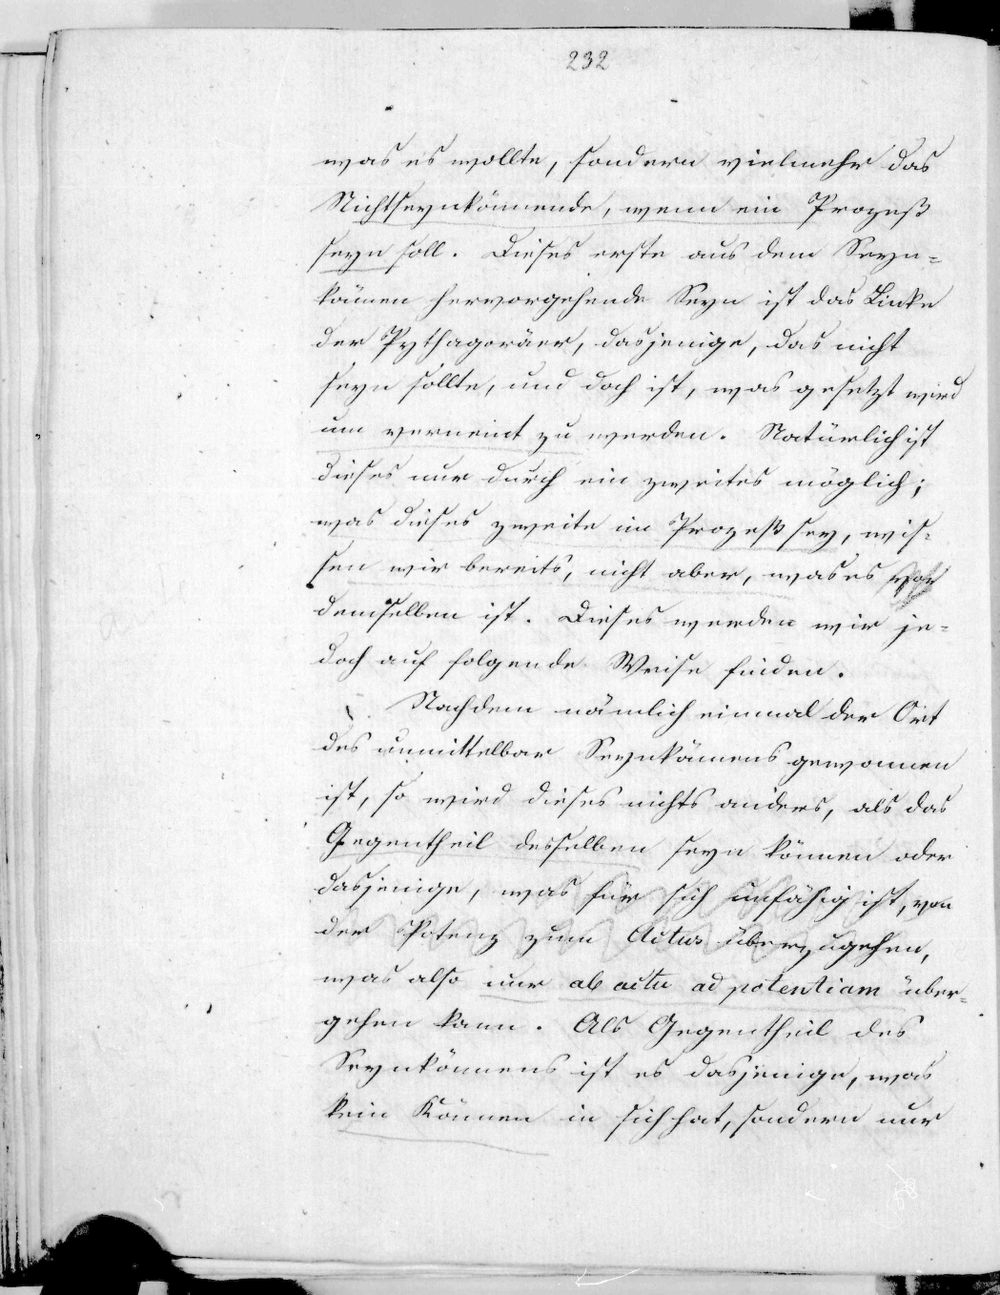 232
was es wollte, sondern vielmehr das
Nichtseynkönnende, wenn ein Prozeß
seyn soll. Dieses erste aus dem Seyn-
können hervorgehende Seyn ist das Linke
der Pythagoräer, dasjenige, das nicht
seyn sollte, und doch ist, was gesetzt wird
um verneint zu werden. Natürlich ist
dieses nur durch ein zweites möglich;
was dieses zweite im Prozeß sey, wis-
sen wir bereits, nicht aber, was es vor
demselben ist. Dieses werden wir je-
doch auf folgende Weise finden.
Nachdem nämlich einmal der Ort
des unmittelbar Seynkönnens gewonnen
ist, so wird dieses nichts anders, als das
Gegentheil desselben seyn können oder
dasjenige, was für sich unfähig ist, von
der Potenz zum Actus überzugehen,
was also nur ab actu ad potentiam über-
gehen kann. Als Gegentheil des
Seynkönnens ist es dasjenige, was
kein Können in sich hat, sondern nur